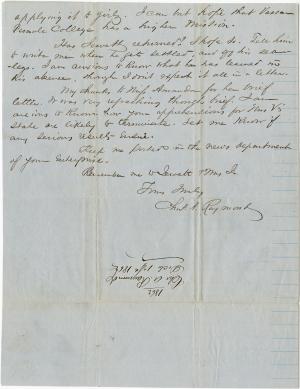 applying it to girls. I can but hope that Vassar
Female College has a higher Mission.
Has Jewett returned? I hope so. Tell him
to write me when he gets ashore and off his sea
legs. I am anxious to know what he has learned in
his absence, though I don't expect it all in a letter.
My thanks to Miss Amanda for her brief
letter. It was very refreshing though brief. I am
anxious to know how your apprehensions for Mrs V's
state are likely to terminate. Let me know if
any serious results ensue.
Keep me posted in the news department
of your Enterprise.
Remember me to Jewett & Mrs J.
Yours truly
Chas. A. Raymond
Chs. A. Raymond
1862